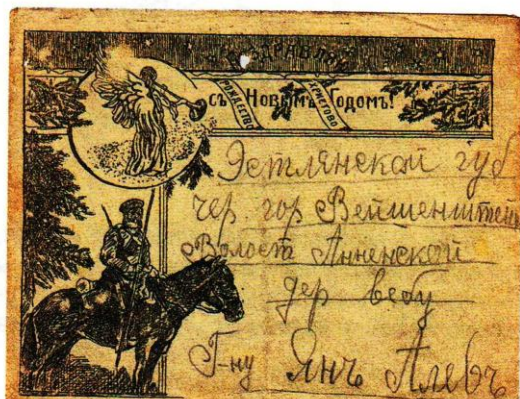 ПОЗДРАВЛЯЮ
РОЖДЕСТВО
съ Новымъ Годомъ!
Эстлянской губ
чер. гор Вейшенштейн
Волость Анненской
дер вебу
Г-ну Янъ Алебъ